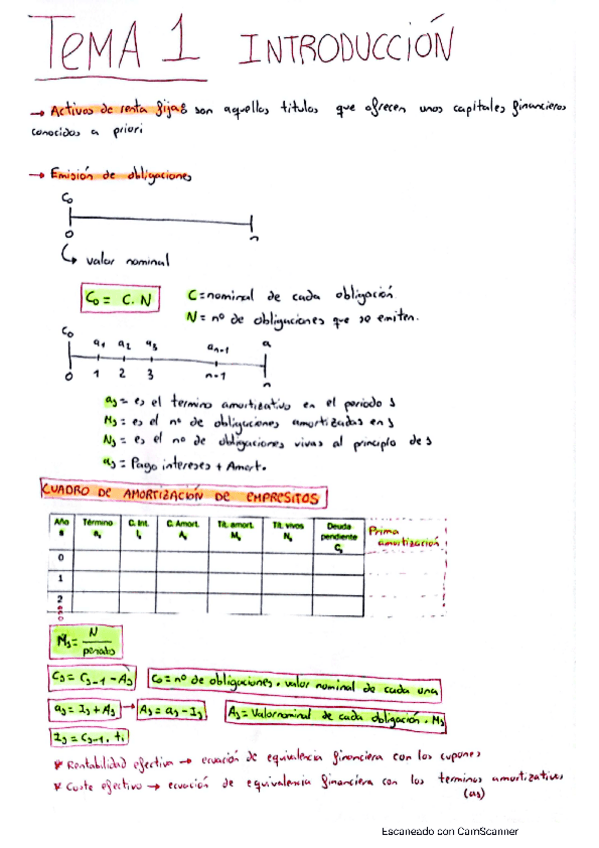 TEMA 1 INTRODUCCIÓN
→ Activos de renta fija: son aquellos titulos que ofrecen unos capitales financieros
conocidos a priori
→ Emisión de obligaciones
C₀
0 n
↳ valor nominal
C₀ = C . N
C = nominal de cada obligación
N = nº de obligaciones que se emiten.
C₀ a₁ a₂ a₃ aₙ₋₁ a
0 1 2 3 n-1 n
as = es el termino amortizativo en el periodo s
Ms = es el nº de obligaciones amortizadas en s
Ns = es el nº de obligaciones vivas al principio de s
as = Pago intereses + Amort.
CUADRO DE AMORTIZACIÓN DE EMPRESITOS
Año s Término as C. Int. Is C. Amort. As Tit. amort. Ms Tit. vivos Ns Deuda pendiente Cs Prima amortización
0
1
2
Ms = N / periodo
Cs = Cs-1 - As C₀ = nº de obligaciones . valor nominal de cada una
as = Is + As → As = as - Is As = Valor nominal de cada obligación . Ms
Is = Cs-1 . i
* Rentabilidad efectiva → ecuación de equivalencia financiera con los cupones
* Coste efectivo → ecuación de equivalencia financiera con los terminos amortizativos
(as)
Escaneado con CamScanner